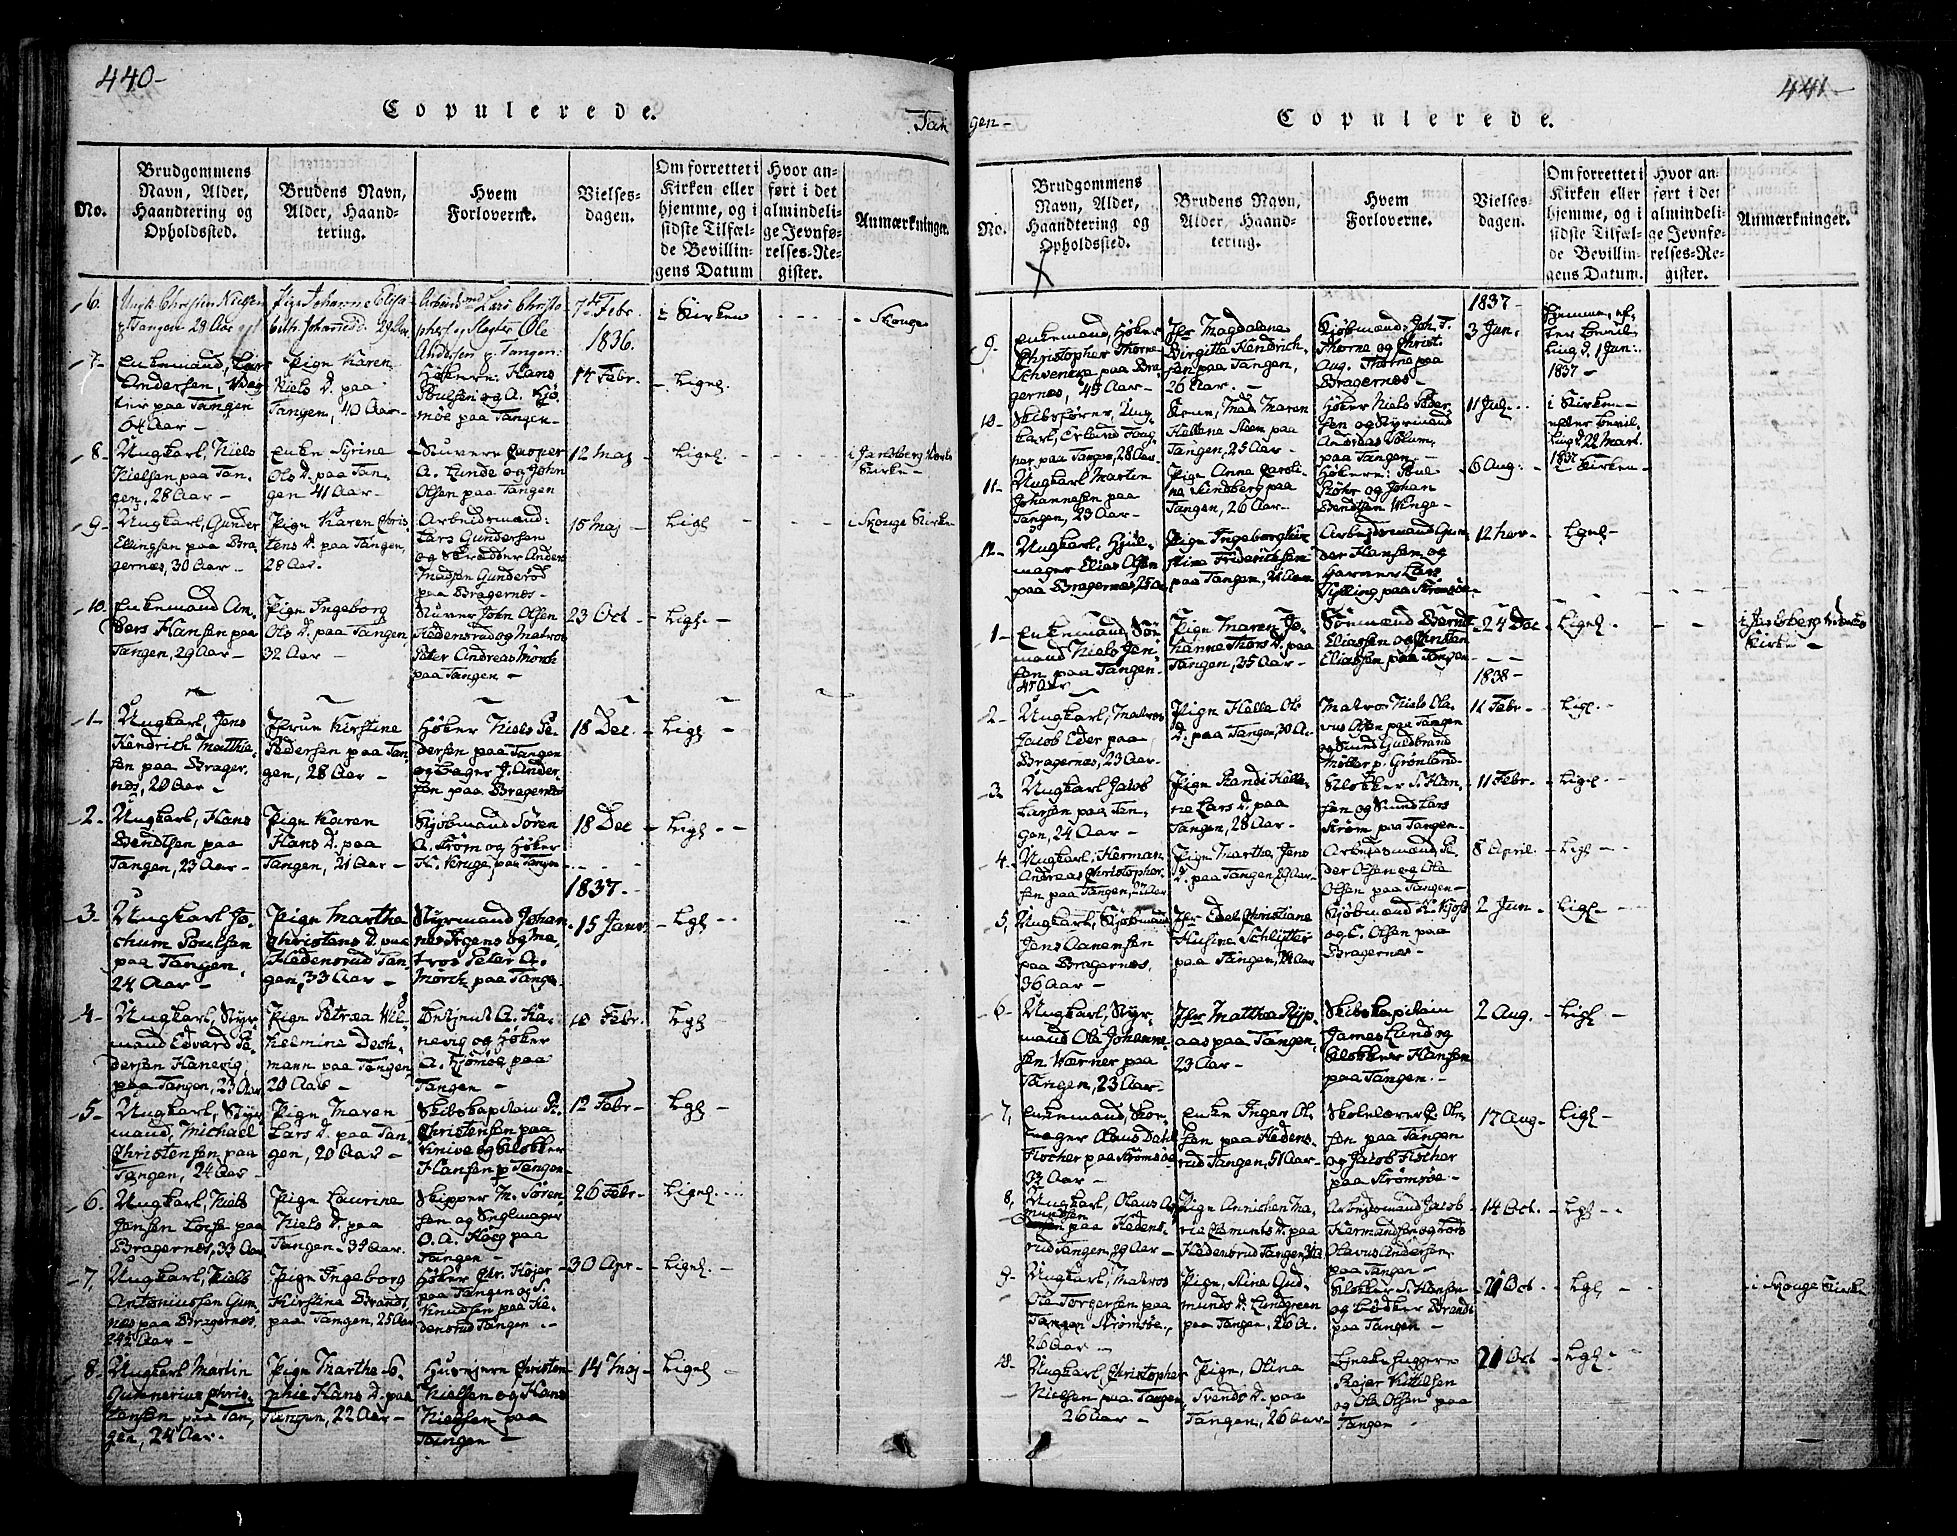 440-
Copulerede.
Tan
No.
Brudgommens
Navn, Alder,
Haandtering og
Opholdssted.
Brudens Navn,
Alder, Haand-
tering.
Hvem
Forloverne.
Vielses-
dagen.
Om forrettet i
Kirken eller
hjemme, og i
sidste Tilfæl-
de Bevillin-
gens Datum
Hvor an-
ført i det
almindeli-
ge Jevnfø-
relses-Re-
gister.
Anmærkninger.
6.
Ungk. Christen Nielsen
p Tangen 29 Aar
Pige Johanne Elisa-
beth
Lars Christo-
phersen og Slagter Ole
Andersen p. Tangen:
7de Febr.
1836.
i Kirken
Skouge
7-
Enkemand, Lars
Andersen,
paa Tangen
64 Aar -
Pigen Karen
Niels D. paa
Tangen, 40 Aar -
Høkerne: Hans
Poulsen og A. Kjø-
møe paa Tangen -
14 Febr.
Ligel.
8-
Ungkarl, Niels
Nielsen paa Tan-
gen, 28 Aar -
Enke Syrine
Ols D. paa Tan-
gen 41 Aar -
Snuvere Casper
A. Lunde og John
Olsen paa Tangen
12 Maj
Ligel -
Kirke -
9-
Ungkarl, Gunder
Ellingsen paa Bra-
gernes, 30 Aar -
Pige Karen Chris
tens D. paa Tangen,
28 Aar.
Arbeidsmænd:
Lars Gundersen
og Skrædder Anders
Madsen Gunderød
paa Bragernes -
15 Maj
Ligl -
i Skouge Kirke
10.
Enkemand An-
ders Hansen paa
Tangen, 29 Aar -
Pige Ingeborg
Ols D. paa Tangen,
32 Aar -
Snuver John Olsen
Hedensrud og Matros
Peter Andreas Mörch
paa Tangen -
23 Oct
Ligl. -
1-
Ungkarl, Jens
Hendrich Matthie-
sen paa Brager-
nes, 20 Aar -
Jfrun Kirstine
Pedersen paa Tan-
gen, 28 Aar -
Høker Niels Pe-
dersen paa Tangen
og Bager J. Ander-
sen paa Bragernes
18 Dec.
Ligl -
2-
Ungkarl, Hans
Bendtsen paa
Tangen, 23 Aar -
Pige Karen
Hans D. paa
Tangen, 21 Aar -
Kjøbmand Sören
A. Ström og Høker
H. Kruge, paa Tangen
18 Dec
Ligl -
1837.
3-
Ungkarl Jo-
chum Poulsen
paa Tangen,
24 Aar -
Pige Marthe
Christens D. paa
Hedensrud Tan-
gen, 33 Aar -
Styrmand Johan-
nes Irgens og Ma-
tros Peter A.
Mörch paa Tangen.
15 Janr.
Lgl -
4-
Ungkarl, Styr-
mand Edvard Pe-
dersen Hanevig,
paa Tangen, 23 Aar
Pige Petræa Wil-
helmine Dech-
mann paa Tangen,
20 Aar -
A. Ha-
nevig og Høker
A. Kjømøe paa
Tangen -
10 Febr.
Lgl -
5-
Ungkarl, Styr-
mand, Michael
Christensen, paa
Tangen, 24 Aar
Pige Maren
Lars D. paa Tan-
gen, 20 Aar -
Skibskapitain P.
Christensen paa
Knive og Klokker
Hansen p Tangen
12 Febr -
Lgl -
6-
Ungkarl, Niels
Jensen Locke paa
Bragernes, 33 Aar
Pige Laurine
Niels D. paa
Tangen, 39 Aar.
Skipper N. Sören-
sen og Seglmager
O. A. Hoeg paa
Tangen
26 Febr -
Ligel -
7,
Ungkarl, Niels
Antoniussen Gun-
nes paa Bragernes,
24½ Aar -
Pige Ingeborg
Kirstine Brandt
paa Tangen, 25 Aar
Høker Chr. Højer
paa Tangen og S.
Knudsen paa He-
densrud Tangen -
30 Apr -
Ligel. -
8-
Ungkarl Martin
Gunnerius Chris-
tensen, paa Tan-
gen, 24 Aar.
Pige Marthe So-
phie Hans D. paa
Tangen, 22 Aar -
Husejere Christen
Nielsen og Hans
Nielsen paa
Tangen -
14 Maj -
Ligel -
441-
gen -
Copulerede.
No.
Brudgommens
Navn, Alder,
Haandtering og
Opholdssted.
Brudens Navn,
Alder, Haand-
tering.
Hvem
Forloverne.
Vielses-
dagen.
Om forrettet i
Kirken eller
hjemme, og i
sidste Tilfæl-
de Bevillin-
gens Datum.
Hvor an-
ført i det
almindeli-
ge Jevnfø-
relses-Re-
gister.
Anmærkninger.
X
1837-
9-
Enkemand, Høker
Christopher Thorne
Schvencke paa Bra-
gernes, 45 Aar -
Jfr Magdalene
Birgitte Hendrich-
sen paa Tangen,
26 Aar. -
Kjøbmænd: Joh. F.
Thorne og Christ.
Aug. Thorne paa
Bragernes -
3 Jun.
Hjemme, ef-
ter Bevil-
ling d. 1 Jun:
1837 -
10-
Skibsfører, Ung-
karl, Erland Fog-
ner paa Tangen, 28 Aar.
Mad. Maren
Hellene Steen paa
Tangen, 25 Aar -
Høker Niels Peder-
sen og Styrmand
Andreas Volum,
paa Tangen -
11 Jul.
i Kirken -
efter Bevil-
ling d. 22 Mart.
1837
11-
Ungkarl Morten
Johannesen paa
Tangen, 23 Aar -
Pige Anne Caroli-
ne Lindberg paa
Tangen, 26 Aar -
Høkerne: Poul
Röhr og Johan
Bendtsen Winge -
6 Aug:
i Kirken -
12-
Ungkarl, Hjul-
mager Elias Olsen
paa Bragernes, 25 Aar
Pige Ingeborg Kir-
stine Frederichsen
paa Tangen, 21 Aar
Arbejdsmand Gun-
der Hansen og
Garver Lars
Tylling paa Strømsøe -
12 Nov -
Lgel -
1-
Enkemand, Søn-
mand Niels Jen-
sen paa Tangen -
45 Aar
Pige Maren Jo-
hanne Thors D. paa
Tangen, 35 Aar -
Berndt
Eliassen og Christen
Eliassen paa Tangen
24 Dec
Ligel -
Kirke -
1838-
2-
Ungkarl, Matros
Jacob Eder paa
Bragernes, 23 Aar
Pige Helle Ols
D. paa Tangen, 30 Aar
Matros Niels Ola-
vus Olsen paa Tangen
og Guldbrand
Møller p. Grönland
11 Febr -
Ligl. -
3-
Ungkarl Jacob
Larsen paa Tan-
gen, 24 Aar -
Pige Randi Helle-
ne Lars D. paa
Tangen, 28 Aar -
Klokker S. Han-
sen og Lars
Ström paa Tangen -
11 Febr.
Ligel -
4-
Ungkarl, Herman
Andreas Christopher-
sen paa Tangen, 22 Aar
Pige Marthe Jens
D. paa Tangen, 29 Aar
Arbejdsmand Pe-
der Olsen og Ole
Olsen paa Tangen -
8 April
Ligl -
5,
Ungkarl, Kjøbmand
Jens Aanensen
paa Bragernes,
36 Aar -
Jfr Edel Christiane
Husine Schlytter
paa Tangen, 24 Aar
Kjøbmænd H. Kjøs
og C. Olsen paa
Bragernes -
2 Jun -
Ligl -
6-
Ungkarl, Styr-
mand Ole Johanne-
sen Værner paa
Tangen, 23 Aar -
Jfr Matthea Ryp-
aas paa Tangen,
23 Aar -
Skibskapitain
James Lund og
Klokker Hansen
paa Tangen. -
2 Aug.
Ligl -
7,
Enkemand, Sko-
mager Claus Dahl
Kocher paa Strømsøe
33 Aar -
Enke Inger Ol-
sen paa Hedens-
rud Tangen, 51 Aar -
Skolelærer P. Ol-
sen paa Tangen
og Jacob Kocher
paa Strømsøe -
17 Aug -
Ligl -
8,
Ungkarl, Olaus As-
mundsen
paa Hedens-
rud Tangen, 29 Aar -
Pige Annichen Ma-
rie Clements D. paa
Hedensrud Tangen,
Arbejdsmænd Jacob
Hermandsen og
Olavus Andersen,
paa Tangen -
14 Oct.
Lgl -
9-
Ungkarl, Matros
Ole Torgersen paa
Tangen Strømsøe,
26 Aar -
Pige, Stine Gud-
munds D. Lundgreen
paa Tangen, 26 A.
Klokker S. Hansen
og Bødker Brandt
paa Tangen -
21 Oct
Lgl -
i Skouge Kirke
10-
Ungkarl, Christopher
Nielsen paa Tangen,
26 Aar -
Pige, Olina
Svends D. paa
Tangen, 26 Aar -
Kittelsen
og Ole Olsen paa
Tangen -
21 Oct
Lgl -